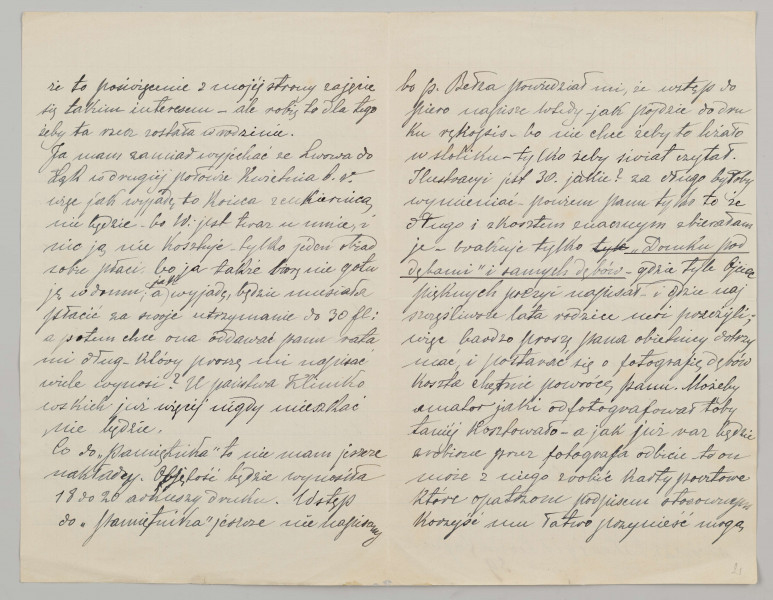 że to poświęcenie z mojej strony zajęcie
się takim interesem – ale robię to dla tego
żeby ta rzecz została w rodzinie.
Ja mam zamiar wyjechać ze Lwowa do
Łąk w drugiej połowie Kwietnia b. r.
więc jak wyjadę to końca
nie będzie – bo W. jest teraz u mnie, i
nic ją nie kosztuje – tylko jeden obiad
sobie płaci, bo ja także nie gotu
ję w domu; a jak wyjadę, będzie musiała
płacić za swoje utrzymanie do 30 fl:
a potem chce ona oddawać panu rata
mi dług – który proszę mi napisać
wiele wynosi? U państwa Klimko
wskich już więcej nigdy mieszkać
nie będzie.
Co do „Pamiętnika" to nie mam jeszcze
nakładcy. Objętość będzie wynosiła
18 do 20 arkuszy druku. Wstęp
do „Pamiętnika" jeszcze nie napisany
bo p. Bełza powiedział mi, że wstęp do
piero napisze wtedy jak pójdzie do dru
ku rękopis – bo nie chce żeby to leżało
w stoliku – tylko żeby świat czytał.
Ilustracyi jest 30. jakie? za długo byłoby
wymieniać – powiem panu tylko to że
długo i z kosztem znacznym zbierałam
je – brakuje tylko „Domku pod
dębami" i samych dębów – gdzie tyle Ojciec
pięknych poezyi napisał – i gdzie naj
szczęśliwsze lata rodzice moi przeżyli;
więc bardzo proszę pana obietnicy dotrzy
mać, i postarać się o fotografię dębów
koszta chętnie powrócę panu. Możeby
amator jaki odfotografował toby
taniej kosztowało – a jak już raz będzie
zrobione przez fotografa odbicie – to on
może z niego zrobić karty pocztowe
które opatrzone podpisem stosownym
korzyść mu łatwo przynieść mogą
21